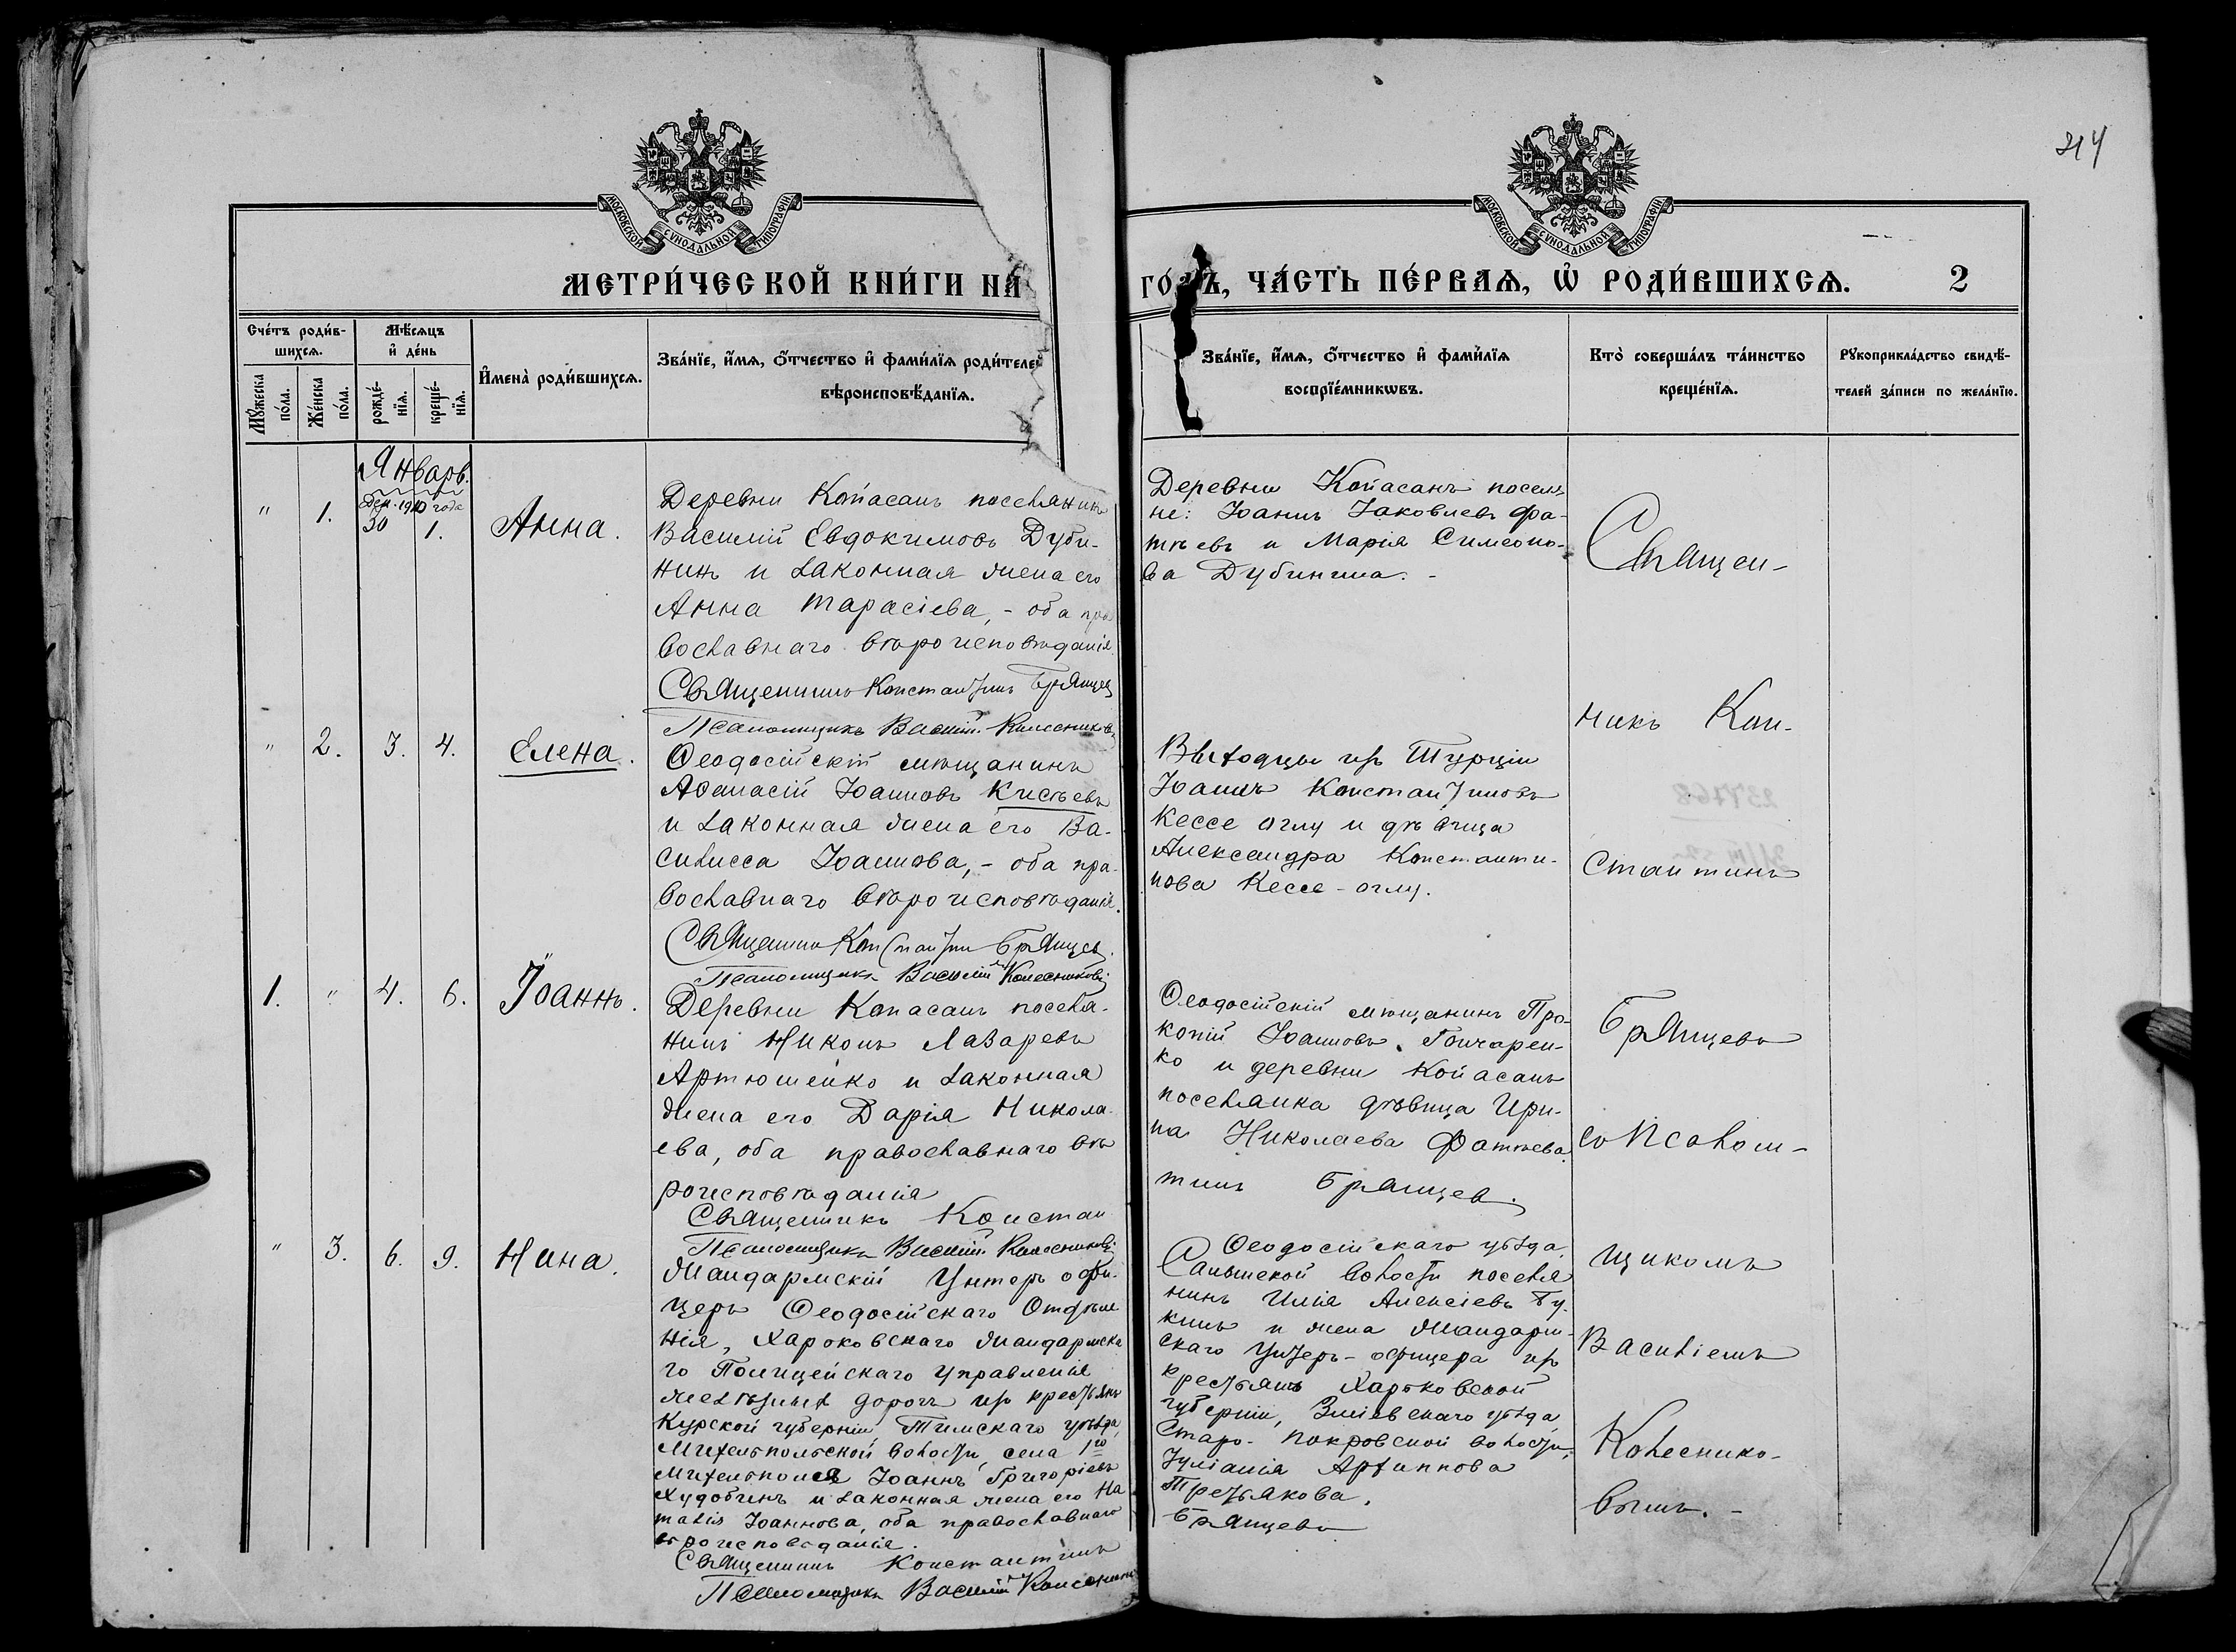 214
МОСКОВСКОЙ СУНОДАЛЬНОЙ ТИПОГРАФІИ
МОСКОВСКОЙ СУНОДАЛЬНОЙ ТИПОГРАФІИ
МЕТРИ́ЧЕСКОЙ КНИ́ГИ НА
ГО́ДЪ, ЧА́СТЬ ПЕ́РВАѦ, Ѡ҆ РОДИ́ВШИХСѦ. 2
Сче́тъ роди́в-
шихсѧ.
Мѣ́сѧцъ
и҆ де́нь
Мꙋ́жеска
по́ла.
Же́нска
по́ла.
рожде́-
нїѧ.
креще́-
нїѧ.
И҆мена̀ роди́вшихсѧ.
Зва́нїе, и҆́мѧ, ѻ҆́тчество и҆ фами́лїѧ родителей
вѣроисповѣ́данїѧ.
Зва́нїе, и҆́мѧ, ѻ҆́тчество и҆ фами́лїѧ
воспрїе́мникѡвъ.
Кто̀ соверша́лъ та́инство
креще́нїѧ.
Рꙋкоприкла́дство свидѣ́-
телей за́писи по жела́нїю.
Январь.
Дек. 1910 года
" 1. 30 1. Анна.
Деревни Койасанъ поселянинъ
Василій Евдокимовъ Дуби-
нинъ и законная жена его
Анна Тарасіева, - оба пра
вославнаго вѣроисповѣданія.
Священникъ Константинъ Брянцев
Псаломщикъ Василій Колесниковъ
Деревни Койасанъ поселя
не: Іоаннъ Іаковлевъ Фа-
тѣевъ и Марія Симеоно-
ва Дубинина. -
" 2. 3. 4. Елена.
Ѳеодосійскій мѣщанинъ
Аѳанасій Іоанновъ Кистьевъ
и законная жена его Ва-
силисса Іоаннова, - оба пра-
вославнаго вѣроисповѣданія.
Священникъ Константинъ Брянцев.
Псаломщикъ Василій Колесниковъ
Выходцы изъ Турціи
Іоаннъ Константиновъ
Кессе оглу и дѣвица
Александра Константи-
нова Кессе-оглу.
1. " 4. 6. Іоаннъ.
Деревни Койасанъ поселя-
нинъ Никонъ Лазаревъ
Артюшенко и законная
жена его Дарія Никола-
ева, оба православнаго вѣ
роисповѣданія
Священникъ Констан
Псаломщикъ Василій Колесниковъ
Ѳеодосійскій мѣщанинъ Про-
копій Іоанновъ Гончарен-
ко и деревни Койасанъ
поселянка дѣвица Ири-
на Николаева Фатѣева.
тинъ Брянцев.
" 3. 6. 9. Нина.
Жандармскій Унтеръ офи-
церъ Ѳеодосійскаго Отдѣле
нія, Харьковскаго жандармска
го Полицейскаго Управленія
желѣзныхъ дорогъ изъ крестьянъ
Курской губерніи, Тимскаго уѣзда,
Михельпольской волости, села 1го
Михельполья Іоаннъ Григоріевъ
Худобинъ и законная жена его На
талія Іоаннова, оба православнаго
вѣроисповѣданія.
Священникъ Константинъ
Псаломщикъ Василій Колесников
Ѳеодосійскаго уѣзда,
волости поселя
нинъ Илія Алексіевъ Бу-
кинъ и жена Жандарм-
скаго Унтеръ-офицера изъ
крестьянъ Харьковской
губерніи, Зміевскаго уѣзда,
Старо-Покровской волости,
Іуліанія Архиппова
Третьякова.
Брянцевъ
Священ-
никъ Кон-
стантинъ
Брянцевъ
съ Псалом-
щикомъ
Василіемъ
Колеснико-
вымъ. -